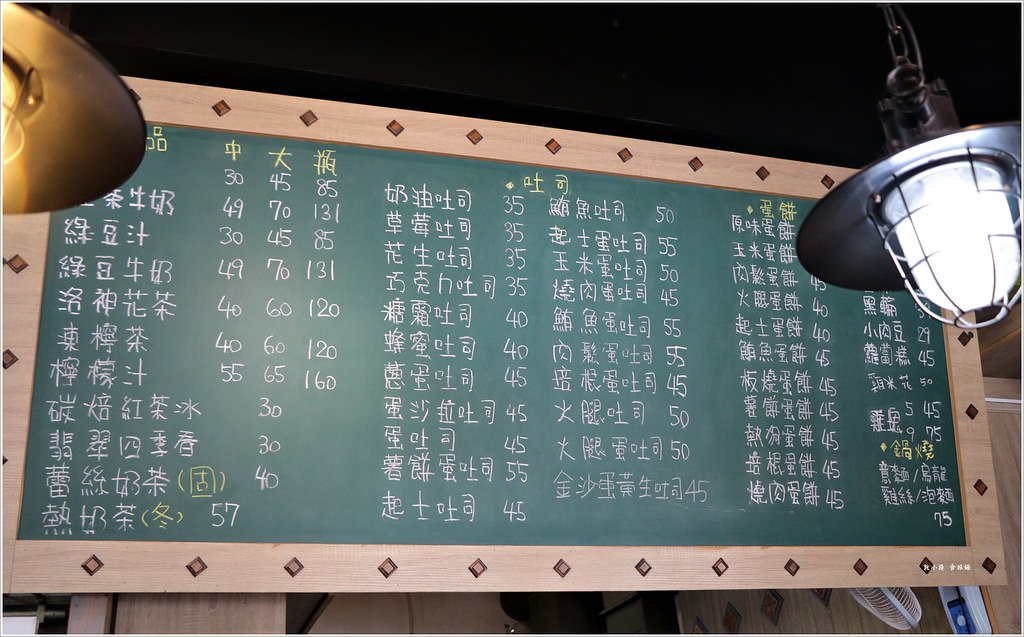 品 中 大 瓶
30 45 85
茶牛奶 49 70 131
綠豆汁 30 45 85
綠豆牛奶 49 70 131
洛神花茶 40 60 120
凍檸茶 40 60 120
檸檬汁 55 65 160
碳焙紅茶冰 30
翡翠四季春 30
蕾絲奶茶(固) 40
熱奶茶(冬) 57
吐司
奶油吐司 35
草莓吐司 35
花生吐司 35
巧克力吐司 35
糖霜吐司 40
蜂蜜吐司 40
蔥蛋吐司 45
蛋沙拉吐司 45
蛋吐司 45
薯餅蛋吐司 55
起士吐司 45
鮪魚吐司 50
起士蛋吐司 55
玉米蛋吐司 50
燒肉蛋吐司 45
鮪魚蛋吐司 55
肉鬆蛋吐司 55
培根蛋吐司 45
火腿吐司 50
火腿蛋吐司 50
金沙蛋黃生吐司 45
蛋餅
原味蛋餅
玉米蛋餅
肉鬆蛋餅 45
火腿蛋餅 40
起士蛋餅 40
鮪魚蛋餅 45
板燒蛋餅 45
薯餅蛋餅 45
熱狗蛋餅 45
培根蛋餅 45
燒肉蛋餅 45
黑輪
小肉豆 29
蘿蔔糕 45
雞米花 50
雞塊 5 45
9 75
鍋燒
意麵/烏龍
雞絲/泡麵
75